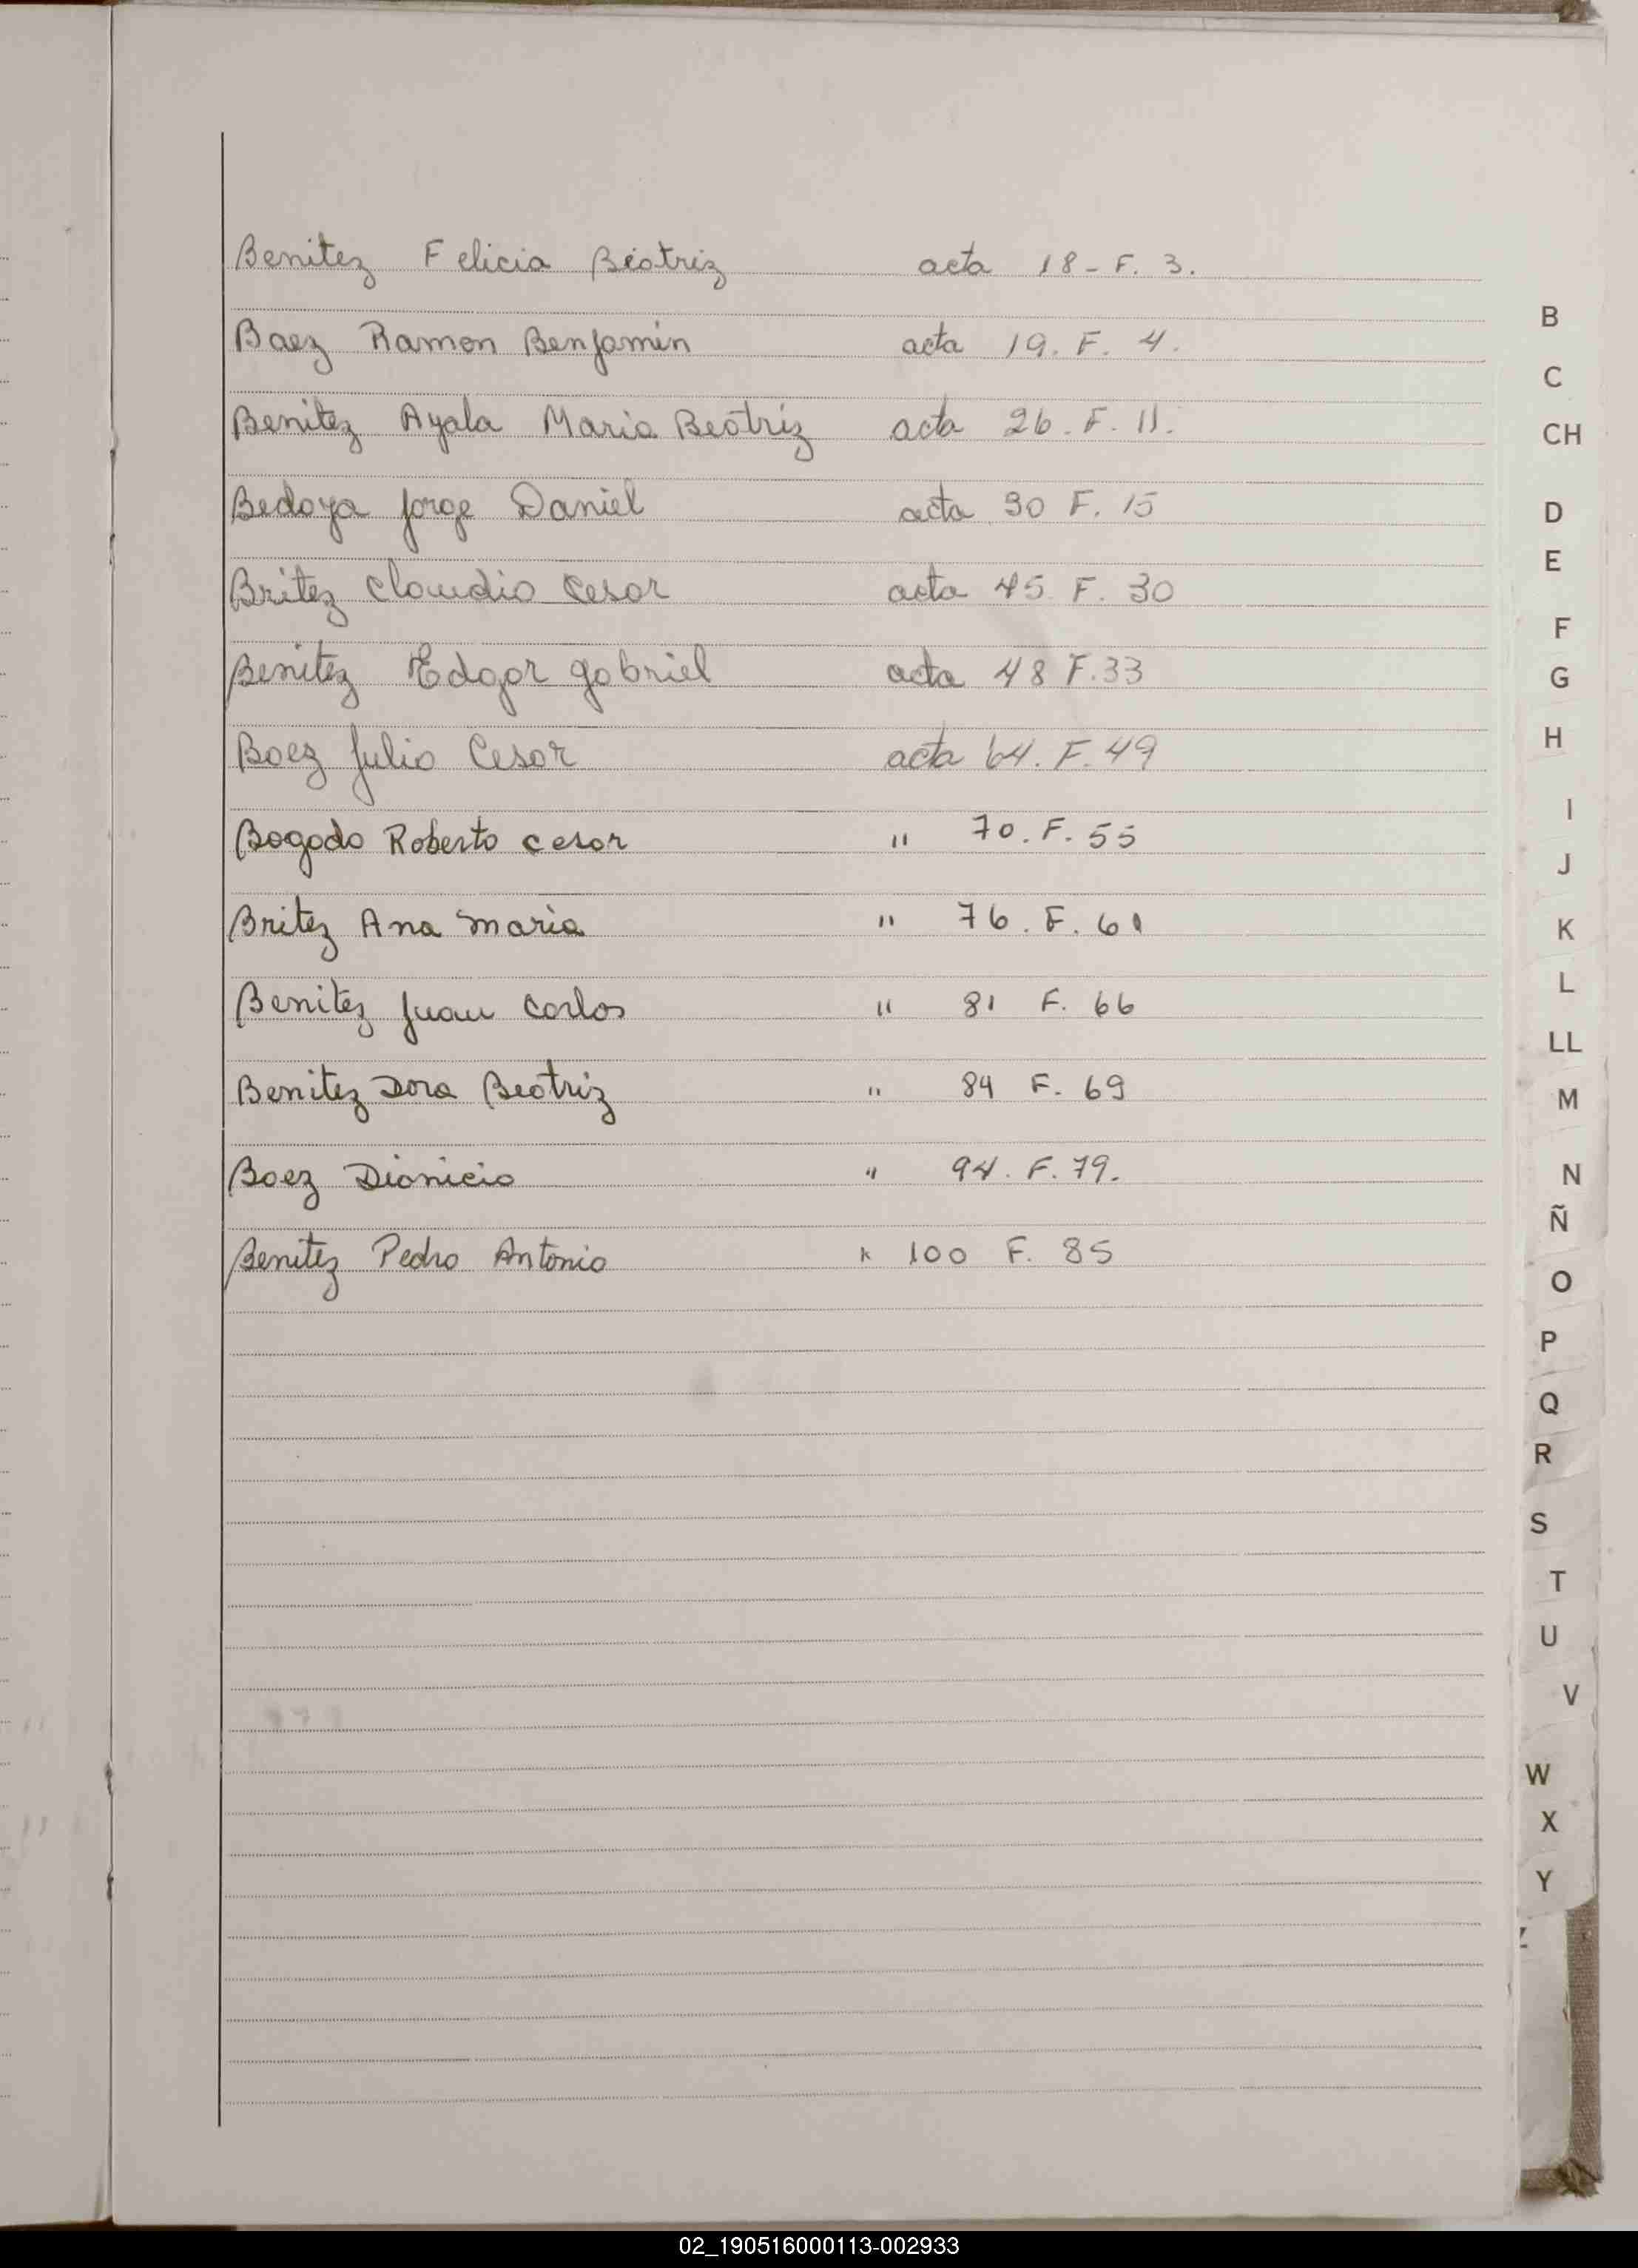 Benitez Felicia Beatriz acta 18 - F. 3.
Baez Ramon Benjamin acta 19. F. 4.
Benitez Ayala Maria Beatriz acta 26. F. 11.
Bedoya Jorge Daniel acta 30 F. 15
Britez Claudio Cesar acta 45 F. 30
Benitez Edgar Gabriel acta 48 F. 33
Baez Julio Cesar acta 64. F. 49
Bogado Roberto Cesar " 70. F. 55
Britez Ana Maria " 76. F. 61
Benitez Juan Carlos " 81 F. 66
Benitez Dora Beatriz " 84 F. 69
Baez Dionicio " 94. F. 79.
Benitez Pedro Antonio " 100 F. 85
B
C
CH
D
E
F
G
H
I
J
K
L
LL
M
N
Ñ
O
P
Q
R
S
T
U
V
W
X
Y
02_190516000113-002933